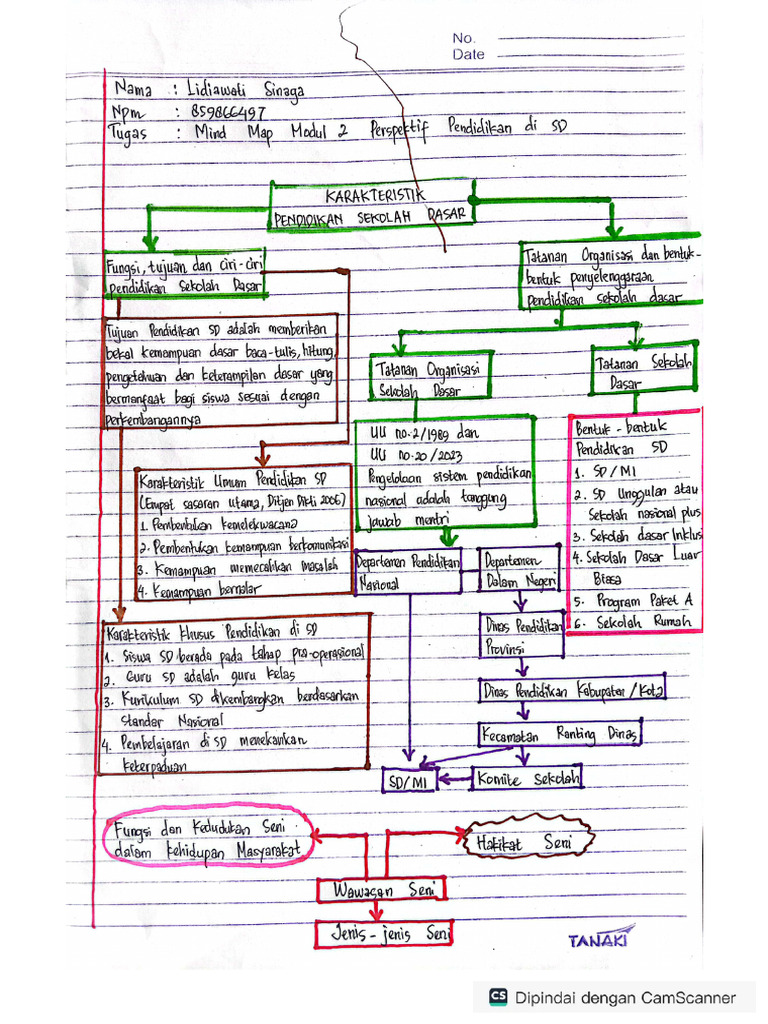 No.
Date
Nama : Lidiawati Sinaga
Npm : 859866497
Tugas : Mind Map Modul 2 Perspektif Pendidikan di SD
KARAKTERISTIK
PENDIDIKAN SEKOLAH DASAR
Fungsi, tujuan dan ciri-ciri
pendidikan Sekolah Dasar
Tatanan Organisasi dan bentuk-
bentuk penyelenggaraan
pendidikan sekolah dasar
Tujuan Pendidikan SD adalah memberikan
bekal kemampuan dasar baca-tulis, hitung,
pengetahuan dan keterampilan dasar yang
bermanfaat bagi siswa sesuai dengan
perkembangannya
Tatanan Organisasi
Sekolah Dasar
Tatanan Sekolah
Dasar
UU no.2/1989 dan
UU no.20/2023
Pengelolaan sistem pendidikan
nasional adalah tanggung
jawab mentri
Bentuk-bentuk
Pendidikan SD
1. SD/MI
2. SD Unggulan atau
Sekolah nasional plus
3. Sekolah dasar Inklusi
4. Sekolah Dasar Luar
Biasa
5. Program Paket A
6. Sekolah Rumah
Karakteristik Umum Pendidikan SD
(Empat sasaran utama, Ditjen Dikti 2006)
1. Pembentukan kemelekwacana
2. Pembentukan kemampuan berkomunikasi
3. Kemampuan memecahkan masalah
4. Kemampuan bernalar
Departemen Pendidikan
Nasional
Departemen
Dalam Negeri
Dinas Pendidikan
Provinsi
Dinas Pendidikan Kabupaten/Kota
Kecamatan Ranting Dinas
Komite Sekolah
SD/MI
Karakteristik Khusus Pendidikan di SD
1. Siswa SD berada pada tahap pra-operasional
2. Guru SD adalah guru kelas
3. Kurikulum SD dikembangkan berdasarkan
Standar Nasional
4. Pembelajaran di SD menekankan
keterpaduan
Fungsi dan Kedudukan Seni
dalam kehidupan Masyarakat
Hakikat Seni
Wawasan Seni
Jenis-jenis Seni
TANAKI
CS Dipindai dengan CamScanner